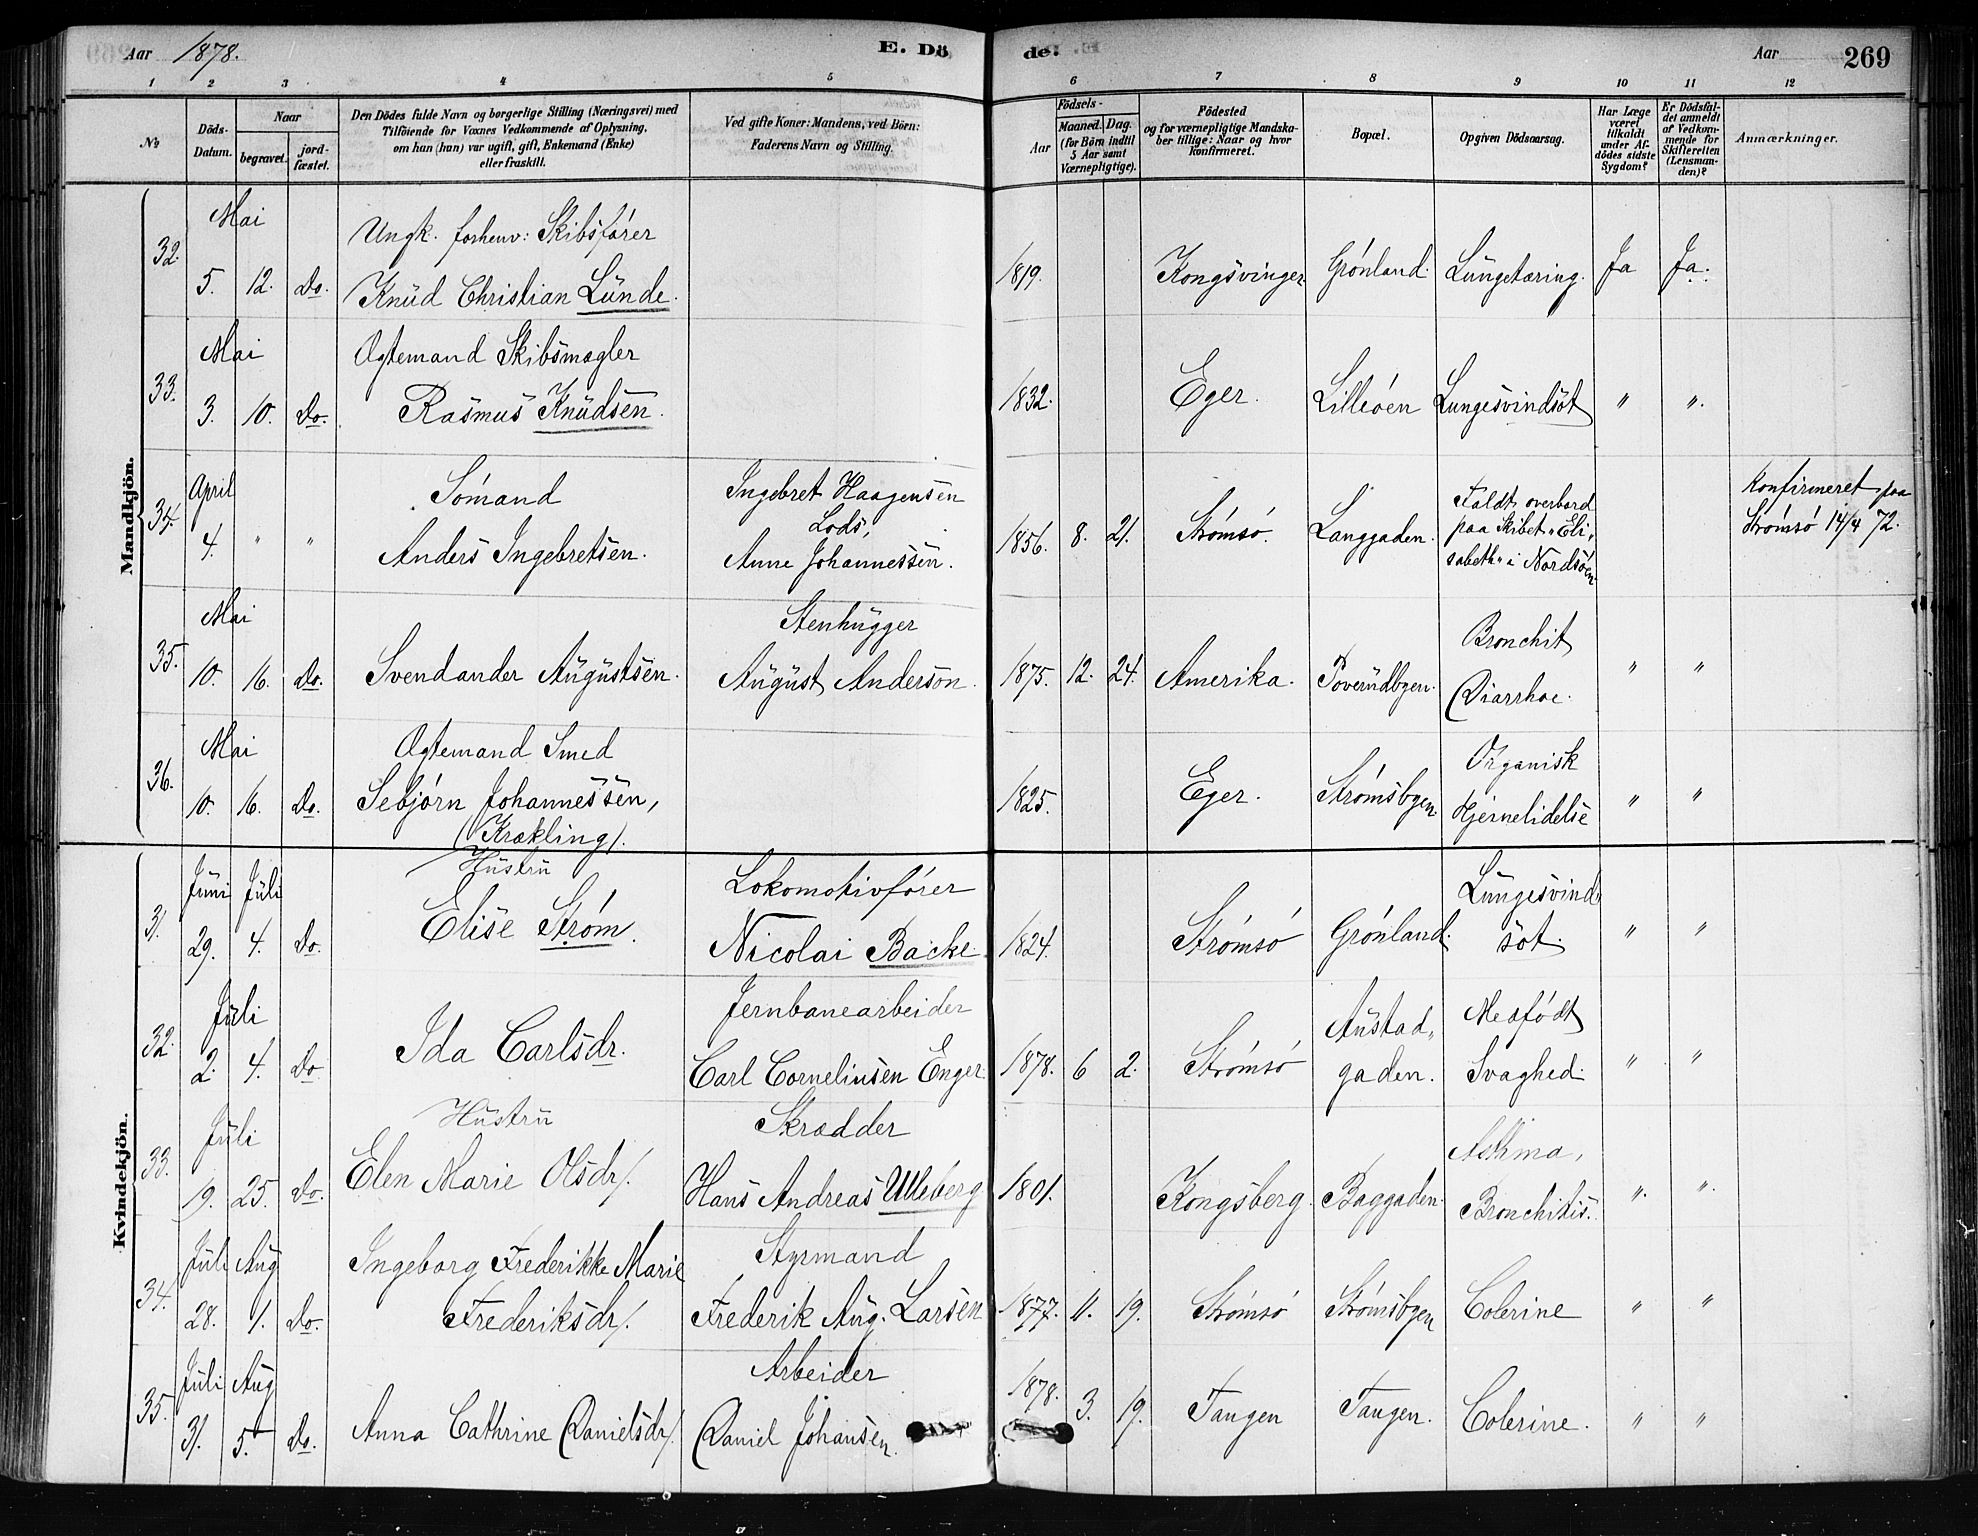 Aar 1878. E. Dö
de. Aar 269
1 2 3 4 5 6 7 8 9 10 11 12
No
Döds-
Datum.
Naar
begravet.
jord-
fæstet.
Den Dödes fulde Navn og borgerlige Stilling (Næringsvei) med
Tilföiende for Voxnes Vedkommende af Oplysning,
om han (hun) var ugift, gift, Enkemand (Enke)
eller fraskilt.
Ved gifte Koner: Mandens, ved Börn:
Faderens Navn og Stilling.
Födsels-
Aar
Maaned. Dag.
(for Börn indtil
5 Aar samt
Værnepligtige).
Födested
og for værnepligtige Mandska-
ber tillige: Naar og hvor
konfirmeret.
Bopæl.
Opgiven Dödsaarsag.
Har Læge
været
tilkaldt
under Af-
dödes sidste
Sygdom?
Er Dödsfal-
det anmeldt
af Vedkom-
mende for
Skifteretten
(Lensman-
den)?
Anmærkninger.
Mandkjön.
32. Mai
5. 12. Do.
Ungk. forhenv: Skibsfører
Knud Christian Lunde.
1819. Kongsvinger Grønland. Lungetæring. Ja Ja.
33. Mai
3. 10. Do.
Ægtemand Skibsmægler
Rasmus Knudsen.
1832. Eger. Lilleøen Lungesvindsot " ".
34. April
4. " "
Sømand
Anders Ingebretsen.
Ingebret Haagensen
Lods,
Anne Johannessen.
1856. 8. 21. Strømsø. Langgaden.
Faldt overbord
paa Skibet "Eli-
sabeth" i Nordsøen
Konfirmeret paa
Strømsø 14/4 72.
35. Mai
10. 16. Do.
Svendander Augustsen.
Stenhugger
August Anderson.
1875. 12. 24. Amerika. Poverudbgen.
Bronchit
Diarrhoe.
" "
36. Mai
10. 16. Do.
Ægtemand Smed
Sebjørn Johannessen,
(Krækling).
1825. Eger. Strømsbgen.
Organisk
Hjernelidelse
" "
Kvindekjön.
31. Juni Juli
29. 4. Do.
Hustru
Elise Strøm.
Lokomotivfører
Nicolai Backe.
1824. Strømsø Grønland.
Lungesvind-
sot.
" "
32. Juli
2. 4. Do
Ida Carlsdr.
Jernbanearbeider
Carl Corneliusen Enger.
1878. 6 2. Strømsø
Austad-
gaden.
Medfødt
Svaghed.
" "
33. Juli
19. 25. Do.
Hustru
Elen Marie Olsdr/.
Skrædder
Hans Andreas Ulleberg
1801. Kongsberg. Baggaden.
Asthma,
Bronchitis.
". ".
34. Juli Aug
28. 1. Do.
Ingeborg Frederikke Marie
Frederiksdr/.
Styrmand
Frederik Aug. Larsen
1877. 11. 19. Strømsø Strømsbgen Colerine " "
35. Juli Aug
31. 5. Do.
Anna Cathrine Danielsdr/.
Arbeider
Daniel Johansen.
1878. 3. 19. Tangen Tangen. Colerine. " "